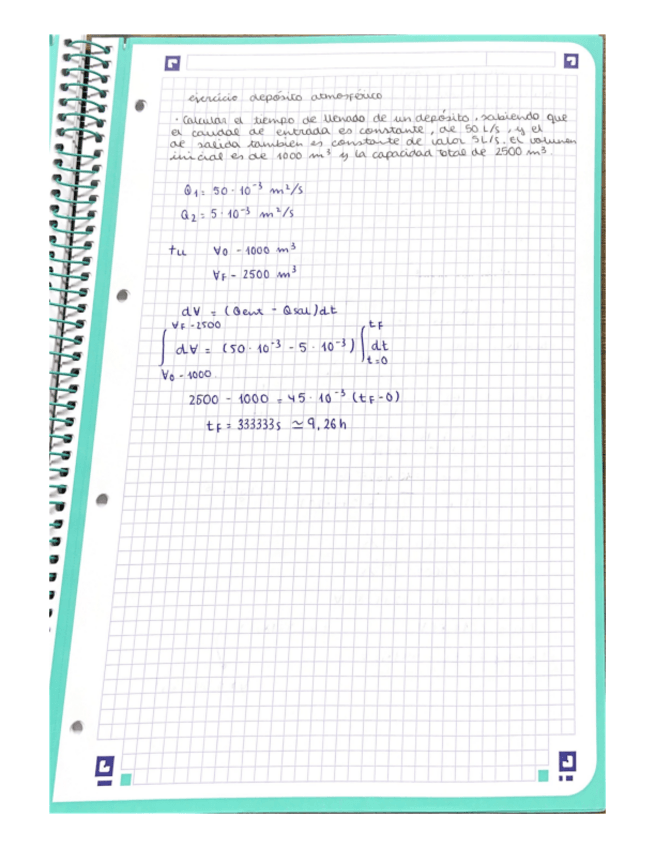 ejercicio depósito atmosférico
· Calcular el tiempo de llenado de un depósito, sabiendo que
el caudal de entrada es constante, de 50 L/s, y el
de salida también es constante de valor 5L/s. El volumen
inicial es de 1000 m³ y la capacidad total de 2500 m³.
Q1 = 50·10⁻³ m²/s
Q2 = 5·10⁻³ m²/s
tll V0 - 1000 m³
VF - 2500 m³
dV = (Qent - Qsal)dt
∫ VF-2500 V0-1000 dV = (50·10⁻³ - 5·10⁻³) ∫ tF t=0 dt
2500 - 1000 = 45·10⁻³ (tF-0)
tF = 333333s ≃ 9,26h